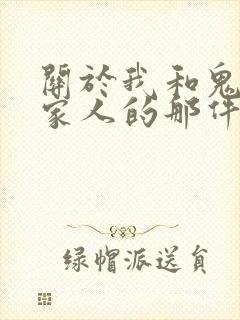 關於我和鬼
家人的那件
綠帽派送員